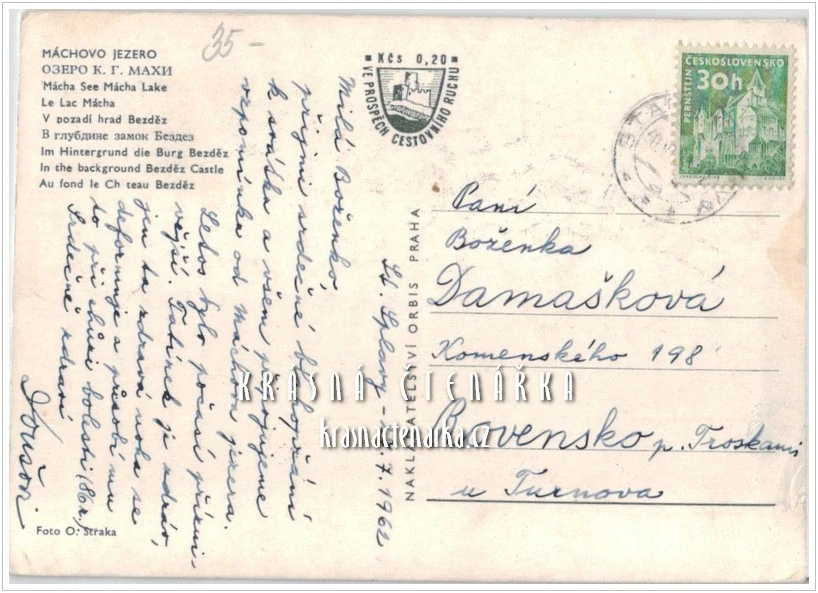 35-
MÁCHOVO JEZERO
ОЗЕРО К. Г. МАХИ
Mácha See Mácha Lake
Le Lac Mácha
V pozadí hrad Bezděz
В глубдине замок Бездез
Im Hintergrund die Burg Bezděz
In the background Bezděz Castle
Au fond le Ch teau Bezděz
Kčs 0,20
VE PROSPĚCH CESTOVNÍHO RUCHU
ČESKOSLOVENSKO
30h
PERNŠTEJN
Milá Boženko,
přijmi srdečné blahopřání
k svátku a všem připojujeme
vzpomínku od Máchova jezera.
Letos bylo počasí přízni-
vější. Tatínek je zdráv,
jen ta zdravá noha se
deformuje a působí mu
to při chůzi bolesti (86 r.)
Srdečně zdraví
St. Splavy - 7.1962
NAKLADATELSTVÍ ORBIS PRAHA
Paní
Boženka
Damašková
Komenského 198
Rovensko p. Troskami
u Turnova
KRÁSNÁ ČTENÁŘKA
krasnactenarka.cz
Foto O. Straka